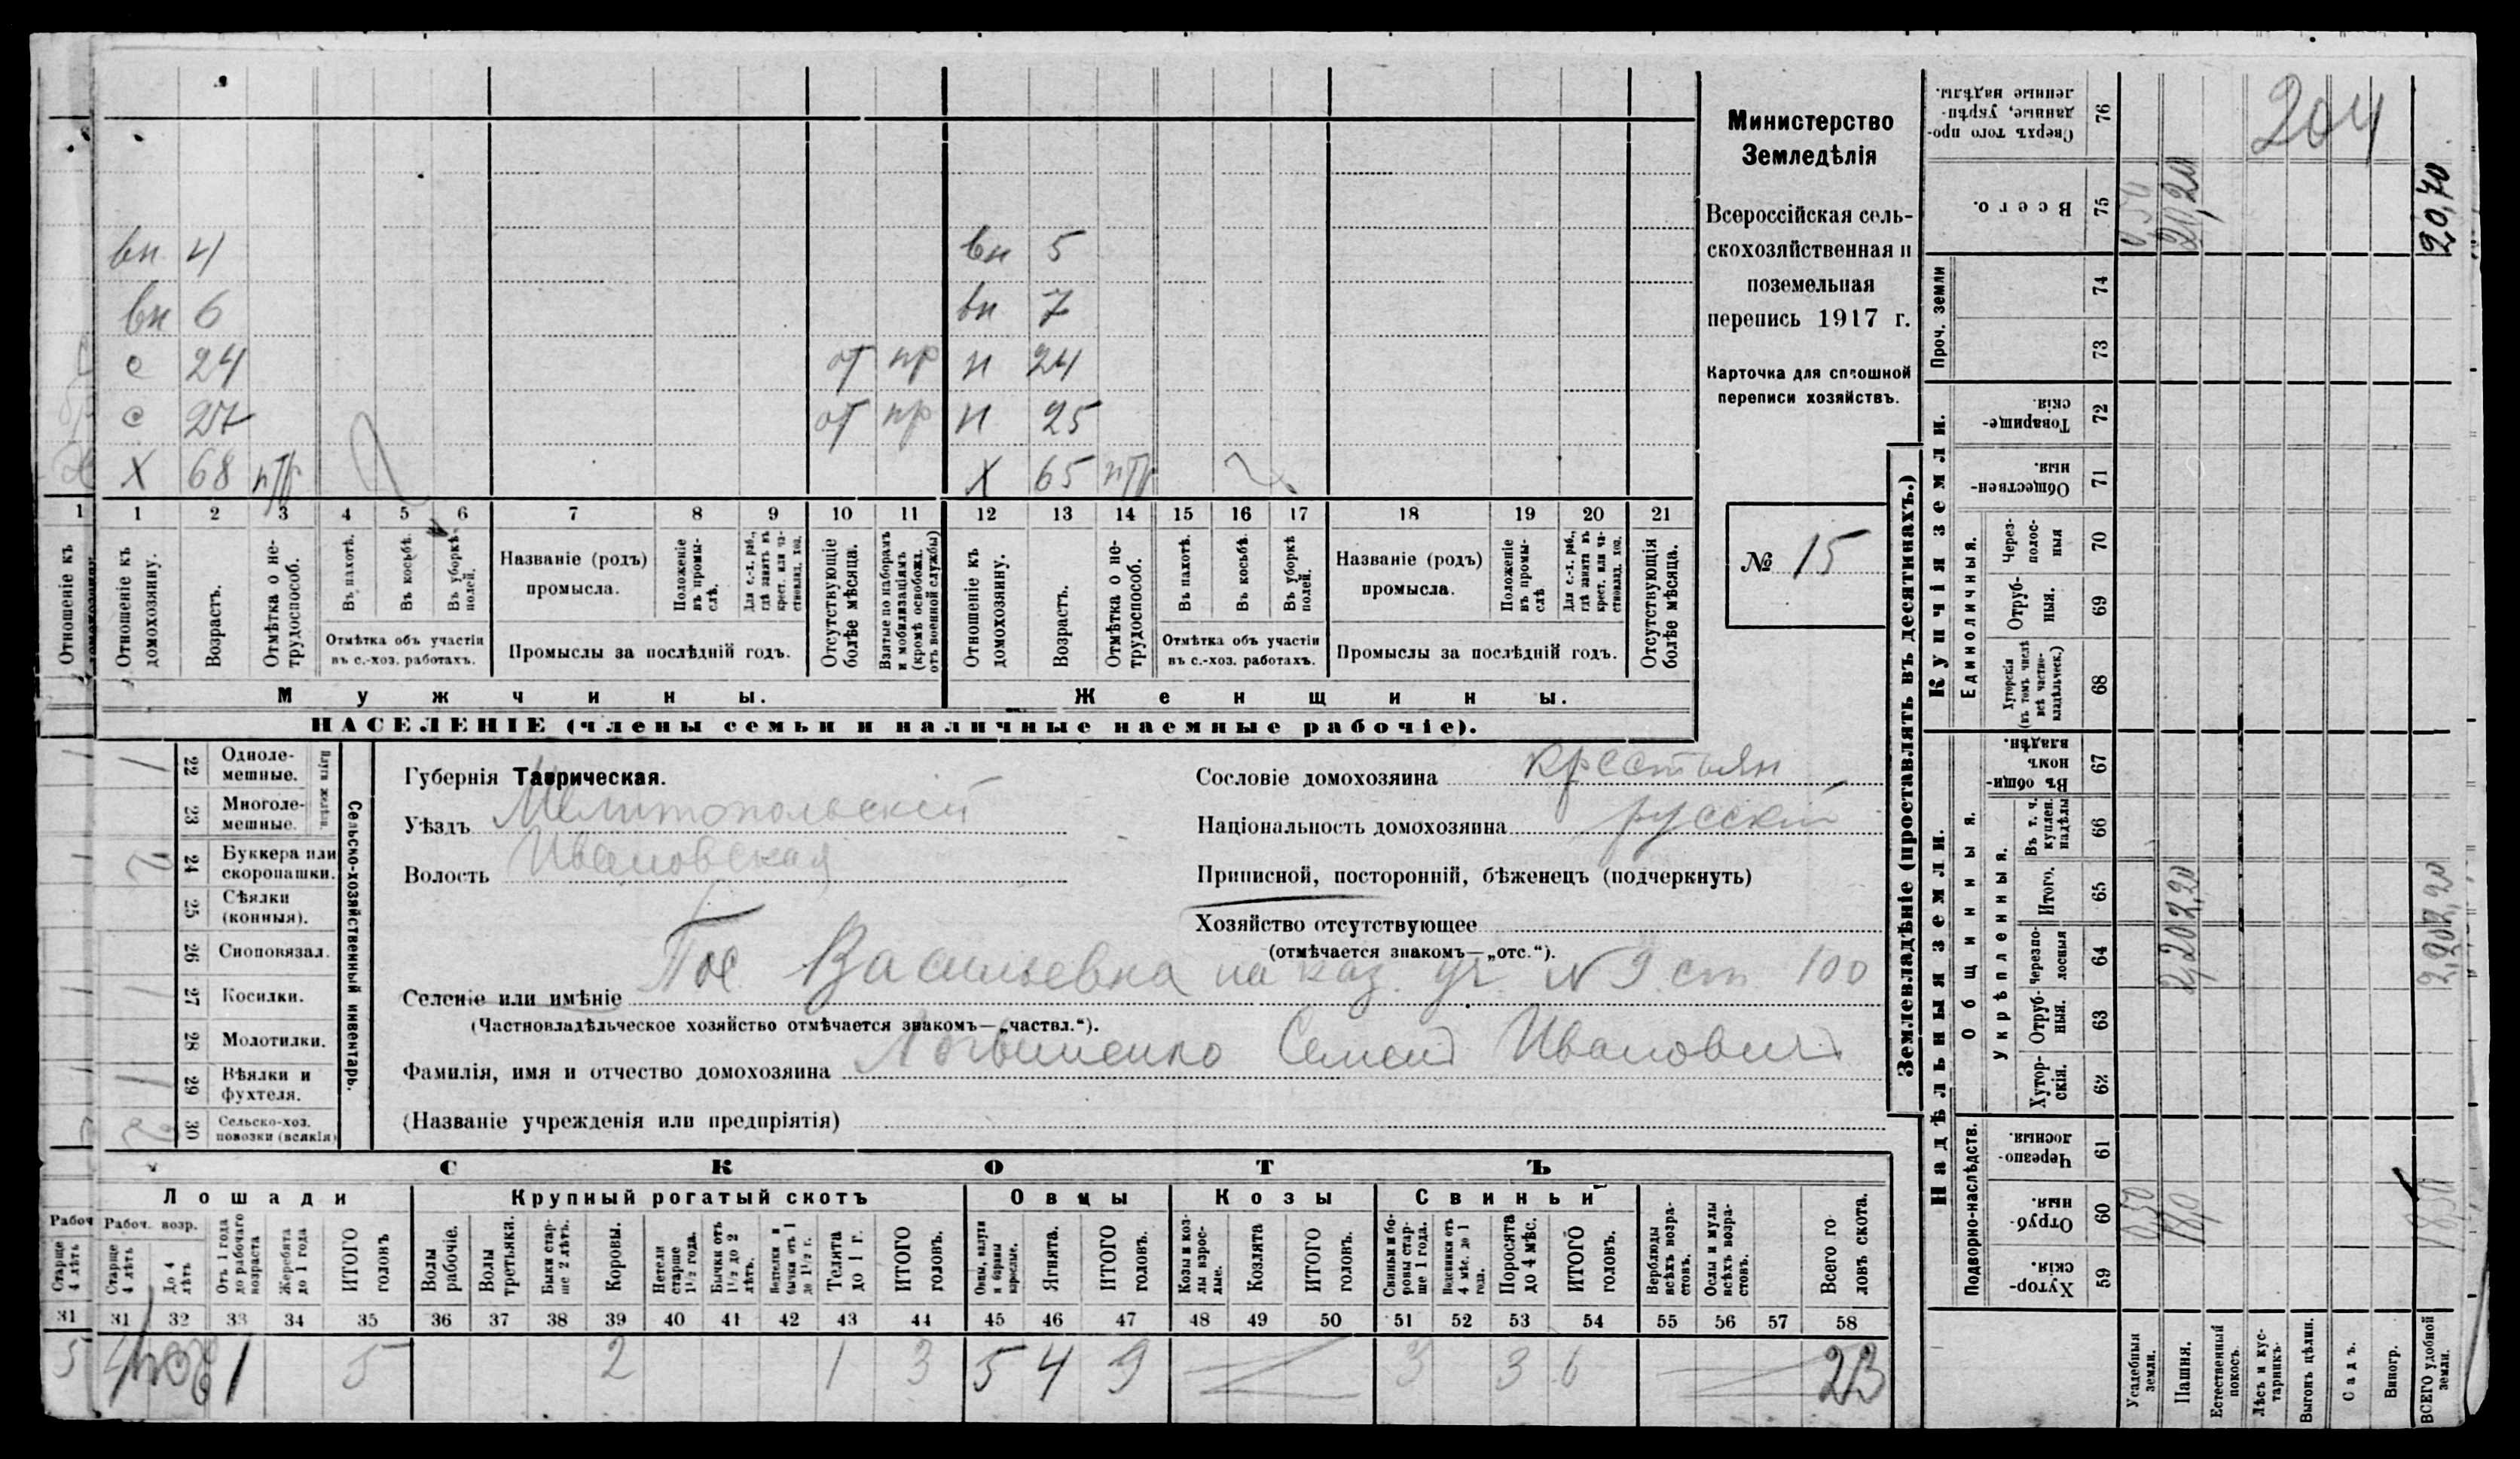 вн 4 вн 5
вн 6 вн 7
с 24 от пр н 24
с 27 от пр н 25
Х 68 нтр Х 65 нтр
1 1 2 3 4 5 6 7 8 9 10 11 12 13 14 15 16 17 18 19 20 21
Отношеніе къ
Отношеніе къ домохозяину.
Возрастъ.
Отмѣтка о не-трудоспособ.
Въ пахотѣ.
Въ косьбѣ.
Въ уборкѣ полей.
Отмѣтка объ участіи
въ с.-хоз. работахъ.
Названіе (родъ)
промысла.
Положеніе въ промы-слѣ.
Для с.-х. раб., гдѣ занятъ въ крест. или ча-стновлад. хоз.
Промыслы за послѣдній годъ.
Отсутствующіе болѣе мѣсяца.
Взятые по наборамъ и мобилизаціямъ (кромѣ освобожд. отъ военной службы)
Отношеніе къ домохозяину.
Возрастъ.
Отмѣтка о не-трудоспособ.
Въ пахотѣ.
Въ косьбѣ.
Въ уборкѣ полей.
Отмѣтка объ участіи
въ с.-хоз. работахъ.
Названіе (родъ)
промысла.
Положеніе въ промы-слѣ
Для с.-х. раб., гдѣ занята въ крест. или ча-стновлад. хоз.
Промыслы за послѣдній годъ.
Отсутствующія болѣе мѣсяца.
Мужчины. Женщины.
НАСЕЛЕНІЕ (члены семьи и наличные наемные рабочіе).
Министерство
Земледѣлія
Всероссійская сель-
скохозяйственная и
поземельная
перепись 1917 г.
Карточка для сплошной
переписи хозяйствъ.
№ 15
Сельско-хозяйственный инвентарь.
Плуги желѣзн.
1 22 Одноле-мешные.
23 Многоле-мешные.
2 24 Буккера или скоропашки.
25 Сѣялки (конныя).
26 Сноповязал.
1 27 Косилки.
28 Молотилки.
1 29 Вѣялки и фухтеля.
2 30 Сельско-хоз. повозки (всякія)
Губернія Таврическая.
Уѣздъ Мелитопольскій
Волость Ивановская
Сословіе домохозяина крестьян
Національность домохозяина русскій
Приписной, посторонній, бѣженецъ (подчеркнуть)
Хозяйство отсутствующее
(отмѣчается знакомъ—„отс.“).
Селеніе или имѣніе Пос Васильевка на каз. уч. № 9 ст. 100
(Частновладѣльческое хозяйство отмѣчается знакомъ—„частвл.“).
Фамилія, имя и отчество домохозяина Логвиненко Семенъ Ивановичъ
(Названіе учрежденія или предпріятія)
СКОТЪ
Лошади Крупный рогатый скотъ Овцы Козы Свиньи
Рабоч
Старше 4 лѣтъ
Рабоч. возр.
Старше 4 лѣтъ
До 4 лѣтъ
Отъ 1 года до рабочаго возраста
Жеребята до 1 года
ИТОГО головъ
Волы рабочіе.
Волы третьяки.
Быки стар-ше 2 лѣтъ.
Коровы.
Нетели старше 1½ года.
Бычки отъ 1½ до 2 лѣтъ.
бычки отъ 1 до 1½ г.
Телята до 1 г.
ИТОГО головъ.
Овцы, валухи и бараны взрослые.
Ягнята.
ИТОГО головъ.
Козы и коз-лы взрос-лые.
Козлята
ИТОГО головъ.
Свиньи и бо-ровы стар-ше 1 года.
Подсвинки отъ 4 мѣс. до 1 года.
Поросята до 4 мѣс.
ИТОГО головъ.
Верблюды всѣхъ возра-стовъ.
Ослы и мулы всѣхъ возра-стовъ.
Всего го-ловъ скота.
31 31 32 33 34 35 36 37 38 39 40 41 42 43 44 45 46 47 48 49 50 51 52 53 54 55 56 57 58
5 4 1 5 2 1 3 5 4 9 3 3 6 23
Землевладѣніе (проставлять въ десятинахъ.)
Сверхъ того про-данные, укрѣп-ленные надѣлы. 76
204
Всего. 75 0,50 20,20 20,70
Проч. земли
74
73
Купчія земли.
Товарище-скія. 72
Обществен-ныя. 71
Единоличныя.
Через-полос-ныя 70
Отруб-ныя. 69
Хуторскія (въ томъ числѣ всѣ частно-владѣльческ.) 68
Надѣльныя земли.
Общинныя.
Въ общи-номъ владѣн. 67
Укрѣпленныя.
Въ т. ч. куплен. надѣлы 66
Итого. 65
Черезпо-лосныя 64
Отруб-ныя. 63
Хутор-скія. 62
Подворно-наслѣдств.
Черезпо-лосныя. 61
Отруб-ныя. 60 0,50
Хутор-скія. 59
Усадебныя земли.
Пашня.
Естественный покосъ.
Лѣсъ и кус-тарникъ.
Выгонъ цѣлин.
Садъ.
Виногр.
ВСЕГО удобной земли.